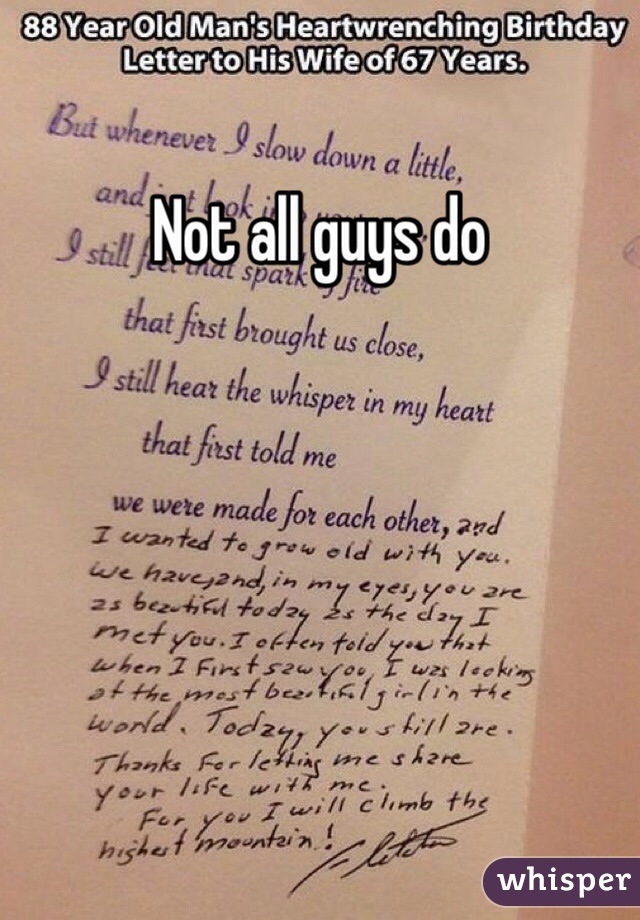 88 Year Old Man's Heartwrenching Birthday
Letter to His Wife of 67 Years.
But whenever I slow down a little,
and just look
Not all guys do
I still feel that spark of fire
that first brought us close,
I still hear the whisper in my heart
that first told me
we were made for each other, and
I wanted to grow old with you.
We have, and, in my eyes, you are
as beautiful today as the day I
met you. I often told you that
when I first saw you, I was looking
at the most beautiful girl in the
world. Today, you still are.
Thanks for letting me share
your life with me.
For you I will climb the
highest mountain!
whisper